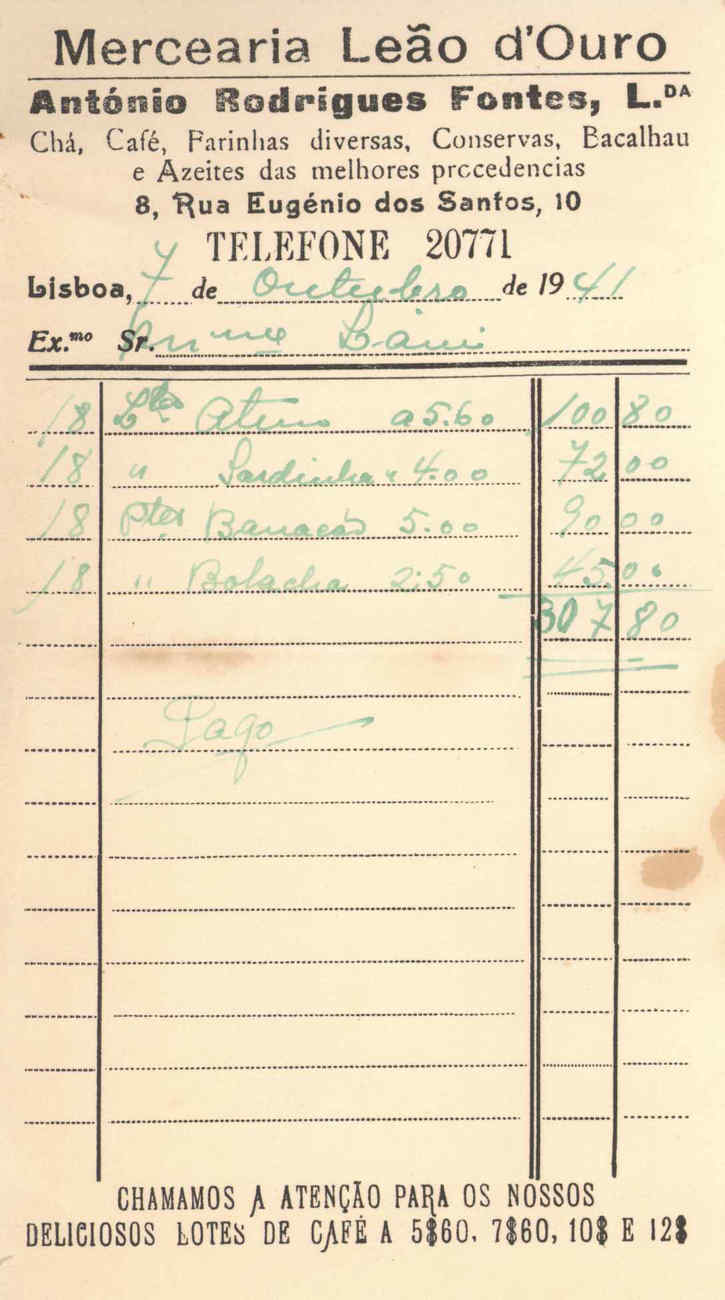 Mercearia Leão d'Ouro
António Rodrigues Fontes, L.DA
Chá, Café, Farinhas diversas, Conservas, Bacalhau
e Azeites das melhores procedencias
8, Rua Eugénio dos Santos, 10
TELEFONE 20771
Lisboa, 7 de Outubro de 1941
Ex.mo Sr.
18 Ltas Atum a 5.60 100 80
18 " Sardinha " 4.00 72 00
18 Ptes 5.00 90 00
18 " Bolacha 2.50 45.00
307 80
Pago
CHAMAMOS A ATENÇÃO PARA OS NOSSOS
DELICIOSOS LOTES DE CAFÉ A 5$60, 7$60, 10$ E 12$